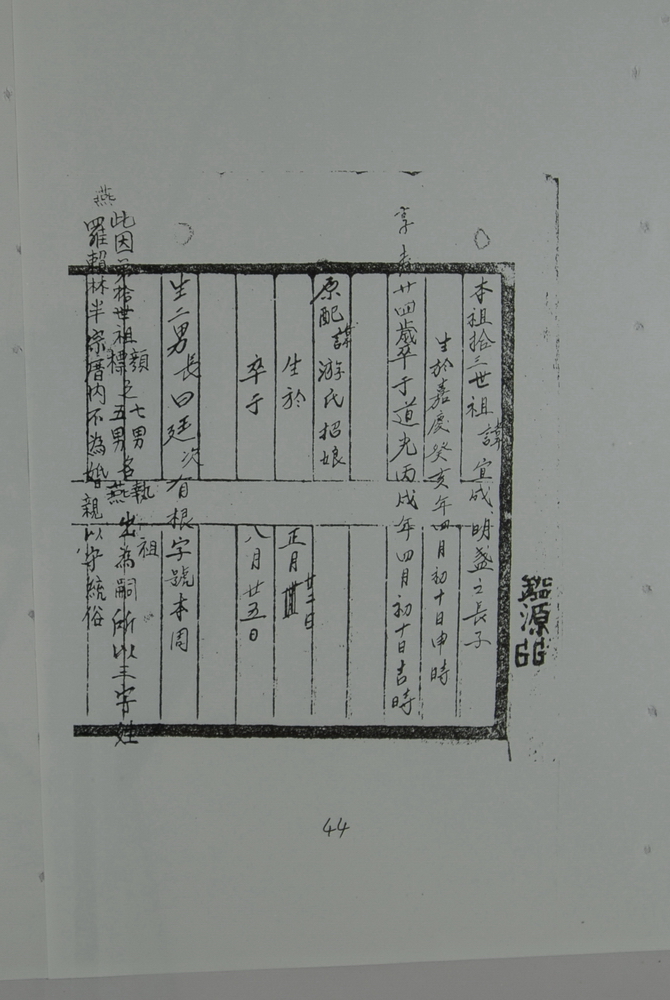 鑑源66
本祖拾三世祖諱宣成明盏之長子
生於嘉慶癸亥年四月初十日申時
享寿廿四歲卒于道光丙戌年四月初十日吉時
原配諱游氏招娘
生於正月廿二日
卒于八月廿五日
生二男長曰廷次有根字號本周
此因第拾世祖標之五男名燕出為嗣所以三字姓
顏七男執祖
燕羅賴林半宗厝内不為婚親以守統俗
44